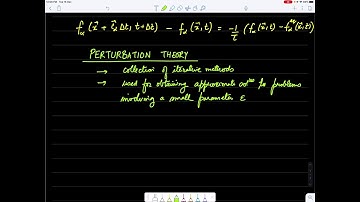 f_α (x⃗ + c⃗_α Δt, t+Δt) - f_α (x⃗, t) = -1/τ (f_α (x⃗, t) - f_α^eq (x⃗, t))
PERTURBATION THEORY
→ collection of iterative methods
→ used for obtaining approximate solⁿˢ to problems
involving a small parameter ε